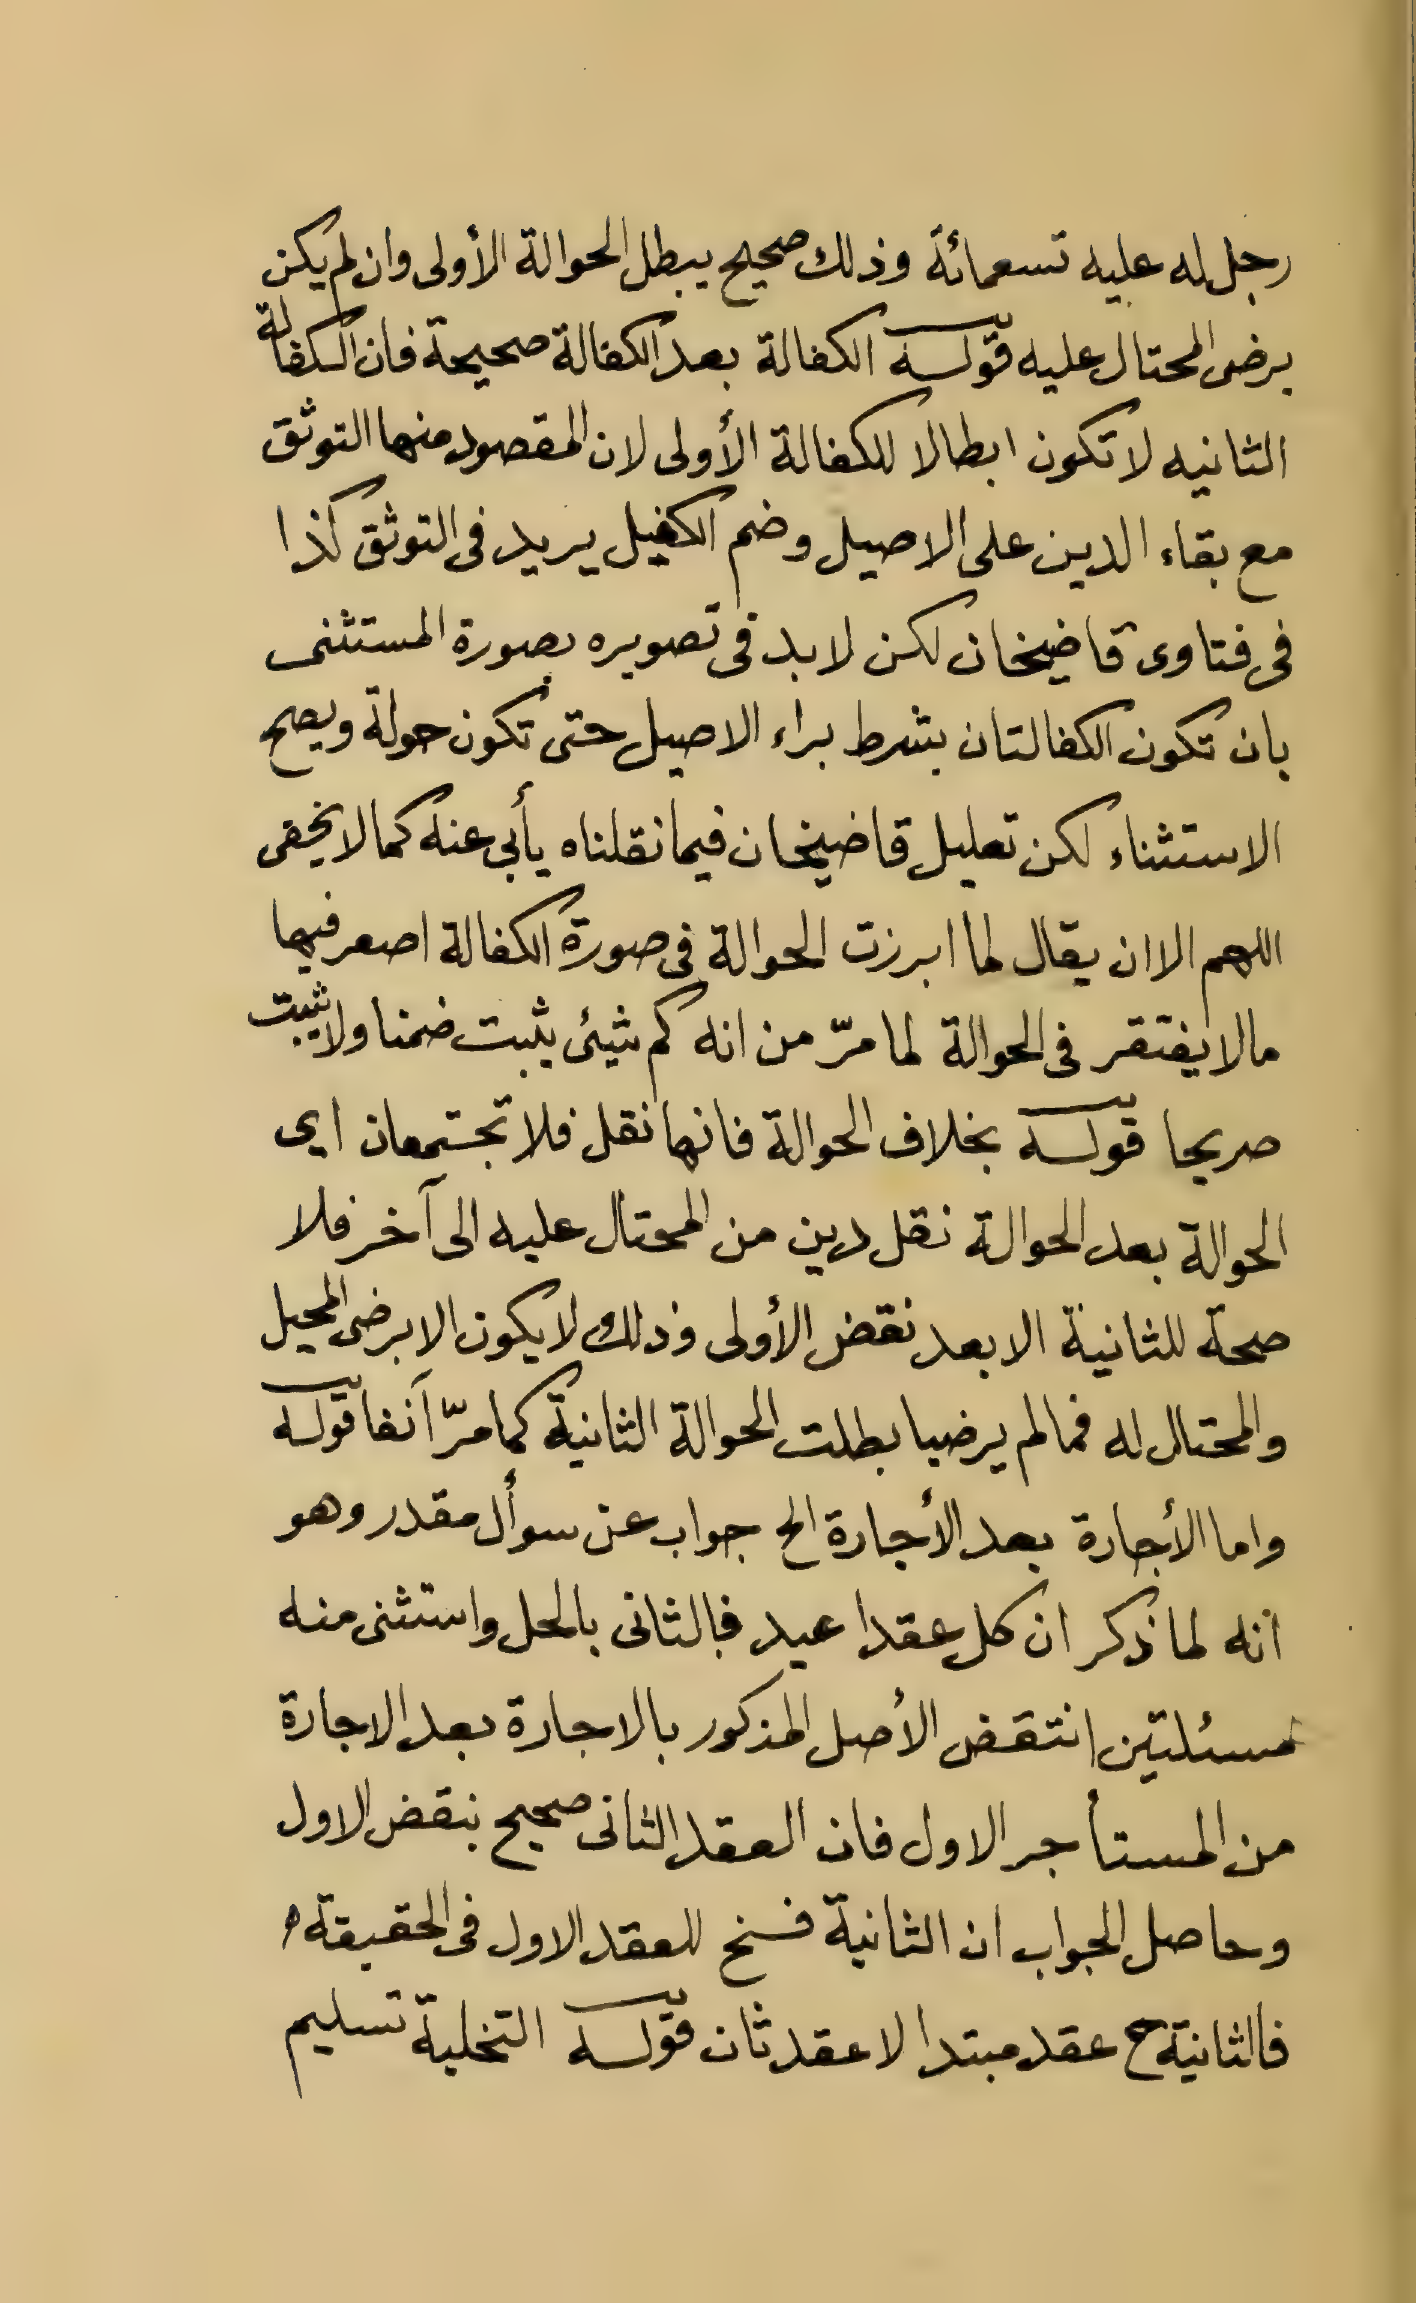 رجل له عليه تسعمائة وذلك صحيح يبطل الحوالة الأولى وان لم يكن
برضى المحتال عليه قوله الكفالة بعد الكفالة صحيحة فان الكفالة
الثانيه لا تكون ابطالا للكفالة الأولى لان المقصود منها التوثق
مع بقاء الدين على الاصيل وضم الكفيل يريد فى التوثق كذا
فى فتاوى قاضيخان لكن لا بد فى تصويره بصورة المستثنى
بان تكون الكفالتان بشرط براء الاصيل حتى تكون حولة ويصح
الاستثناء لكن تعليل قاضيخان فيما نقلناه يأبى عنه كما لا يخفى
اللهم الا ان يقال لما ابرزت الحوالة فى صورة الكفالة اصعر فيها
مالا يفتقر فى الحوالة لما مرّ من انه كم شيئ يثبت ضمنا ولا يثبت
صريحا قوله بخلاف الحوالة فانها نقل فلا تجتمعان اى
الحوالة بعد الحوالة نقل دين من المحتال عليه الى آخر فلا
صحة للثانية الا بعد نقض الأولى وذلك لا يكون الا برضى المحيل
والمحتال له فما لم يرضيا بطلت الحوالة الثانية كما مرّ آنفا قوله
واما الأجارة بعد الأجارة الخ جواب عن سوأل مقدر وهو
انه لما ذكر ان كل عقد اعيد فالثانى بالحل واستثنى منه
مسئلتين انتقض الأصل المذكور بالاجارة بعد الاجارة
من المستأجر الاول فان العقد الثانى صحيح بنقض الاول
وحاصل الجواب ان الثانية فسخ للعقد الاول فى الحقيقة
فالثانية ح عقد مبتدا لا عقد ثان قوله التخلية تسليم